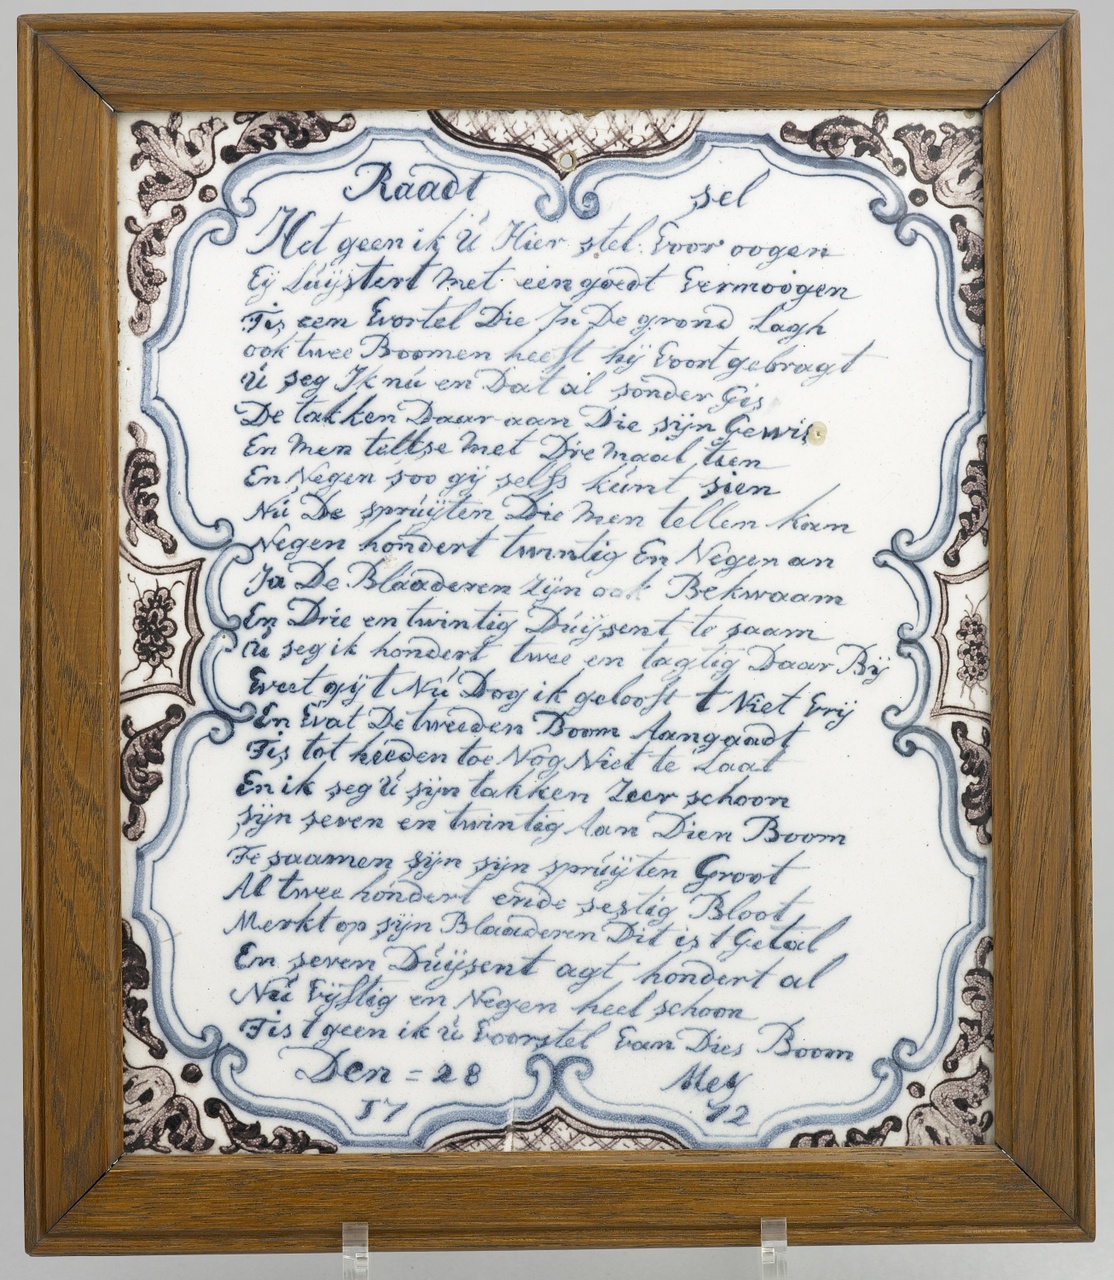 Raadt sel
Het geen ik Ú Hier stel Voor oogen
Eij Lúijstert Met een goedt Vermoogen
Tis een Wortel Die In De grond Lagh
ook twee Boomen heeft hij Voort gebragt
Ú seg Ik nú en Dat al sonder Gis
De takken Daar aan Die sijn Gewis
En Men teltse Met Drie Maal tien
En Negen soo gij selfs kúnt sien
Nú De sprúijten Die Men tellen kan
Negen hondert twintig En Negen an
Ja De Blaaderen Zijn ook Bekwaam
En Drie en twintig Dúijsent te saam
Ú seg ik hondert twee en tagtig Daar Bij
Weet gij t Nú Dog ik geloof t Niet Vrij
En Wat De tweeden Boom Aangaadt
Tis tot heeden toe Nog Niet te Laat
En ik seg Ú sijn takken Zeer schoon
sijn seven en twintig Aan Dien Boom
Te saamen sijn sijn sprúijten Groot
Al twee hondert ende sestig Bloot
Merkt op sijn Blaaderen Dit is t Getal
En seven Dúijsent agt hondert al
Nú Vijftig en Negen heel schoon
Tis t geen ik ú Voorstel Van Dies Boom
Den = 28 Mey
17 72